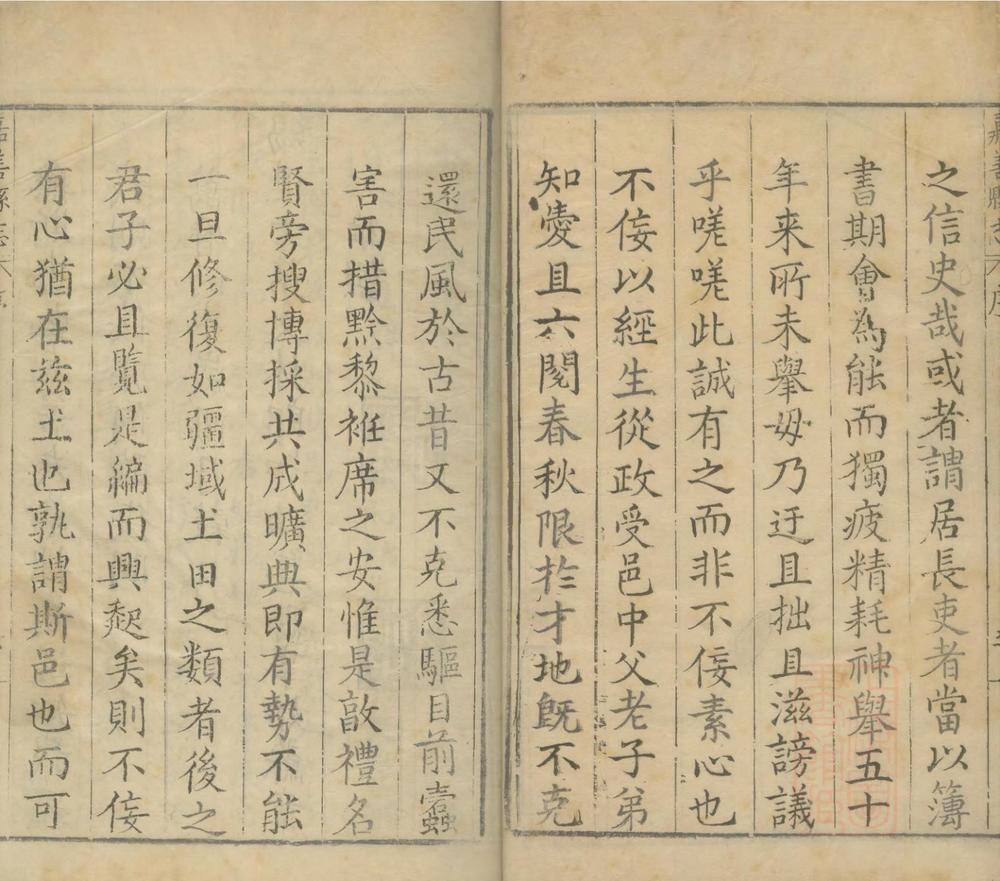 之信史哉或者謂居長吏者當以簿
書期會為能而獨疲精耗神舉五十
年来所未舉毋乃迂且拙且滋謗議
乎嘆嘆此誠有之而非不佞素心也
不佞以經生從政受邑中父老子弟
知愛且六閱春秋限扵才地既不克
還民風於古昔又不克悉驅目前蠹
害而措黔黎袵席之安惟是敦禮名
賢旁搜博採共成曠典即有勢不能
一旦修復如疆域土田之類者後之
君子必且覧是編而興起矣則不佞
有心猶在兹土也孰謂斯邑也而可